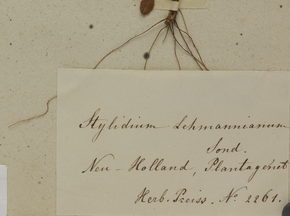 Stylidium Lehmannianum
Sond.
Neu-Holland, Plantagenet
Herb. Preiss. No. 2261.